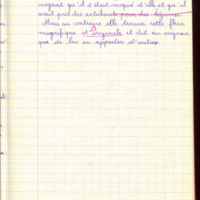 croyant qu'il s'était moqué d'elle et qu'il
avait pris des artichauts pour des légumes.
Mais au contraire elle trouva cette fleur
magnifique et originale et dit au crayon
que de lui en apporter d'autres.